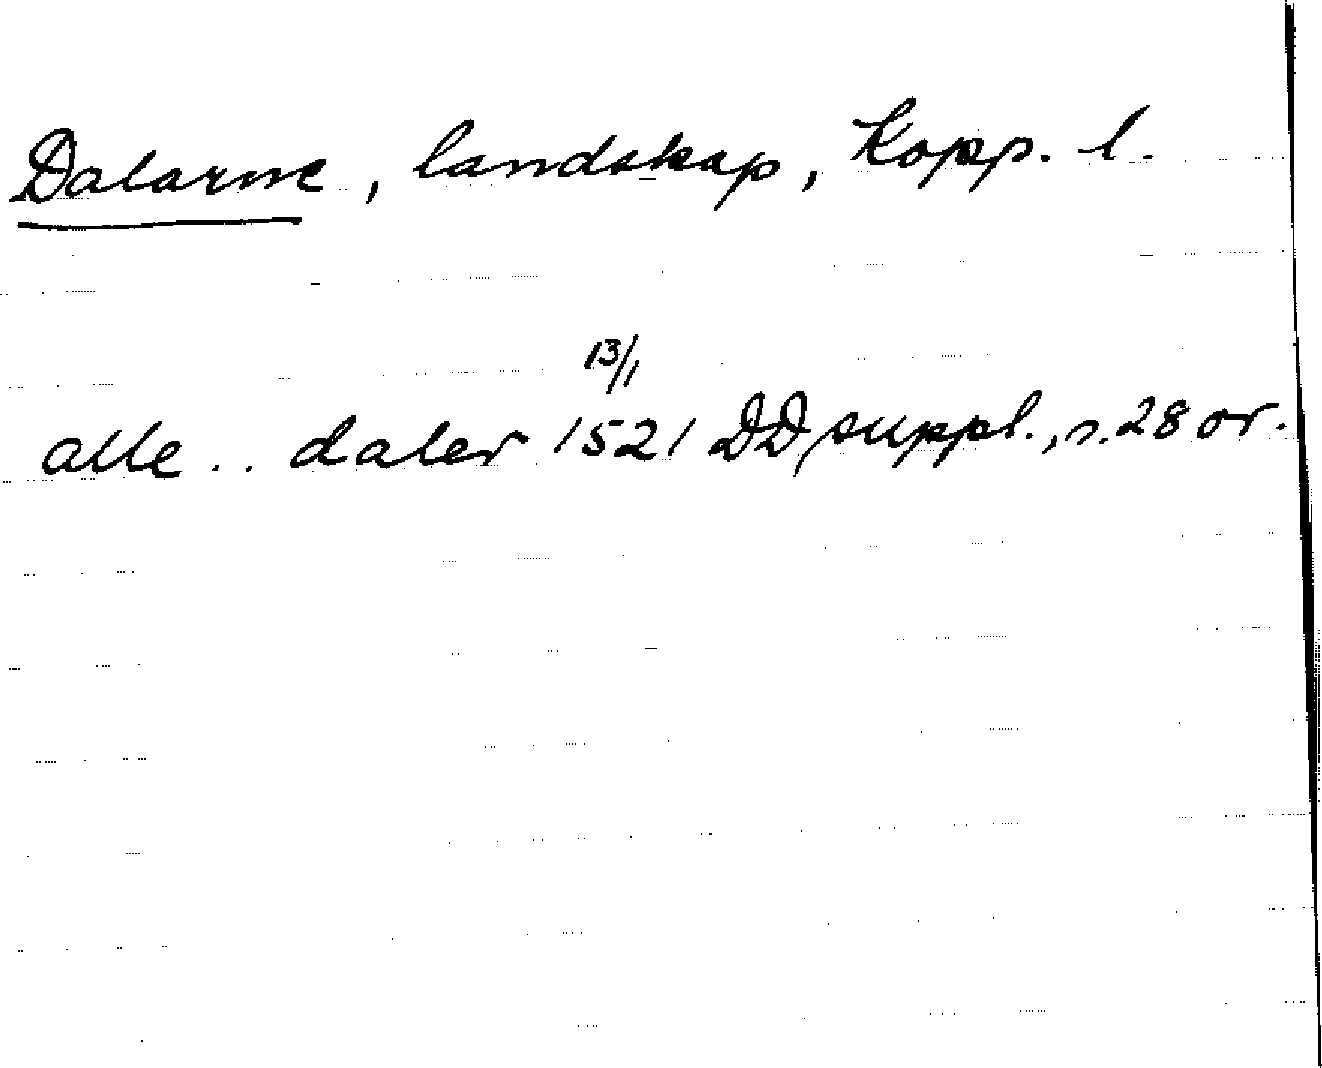 Dalarne, landskap, Kopp. l.
13/1
alle .. daler 1521 DD suppl., s. 28 or.